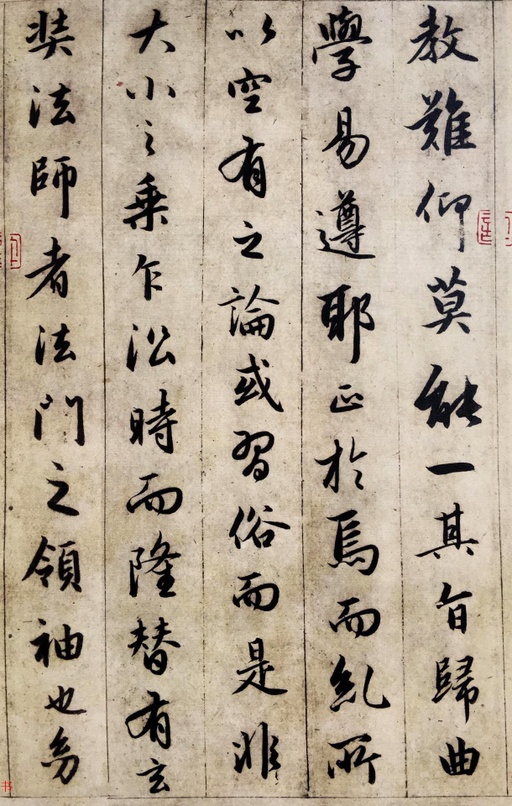 教難仰莫能一其旨歸曲
學易遵耶正於焉而糺所
以空有之論或習俗而是非
大小之乘乍沿時而隆替有玄
奘法師者法門之領袖也幼